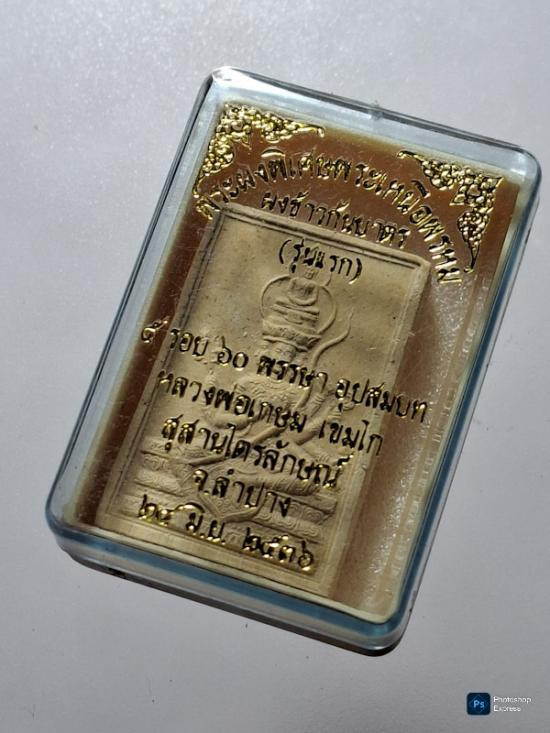 พระผงพิเศษพระเหนือพรหม
ผงข้าวก้นบาตร
(รุ่นแรก)
๕ รอบ ๖๐ พรรษา อุปสมบท
หลวงพ่อเกษม เขมโก
สุสานไตรลักษณ์
จ.ลำปาง
๒๘ มิ.ย. ๒๕๓๖
Ps
Photoshop
Express